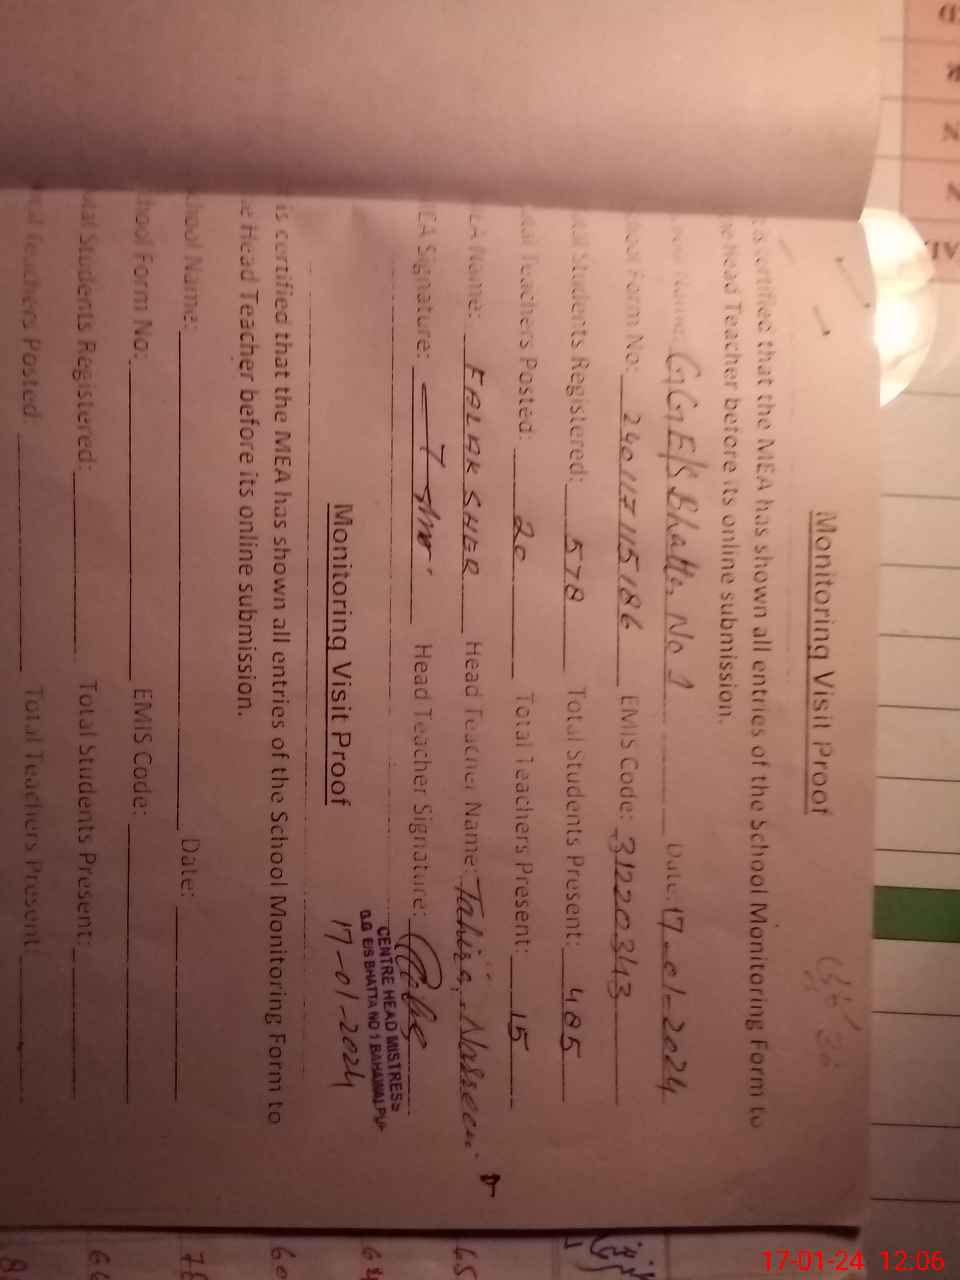 Monitoring Visit Proof
is certified that the MEA has shown all entries of the School Monitoring Form to
Head Teacher before its online submission.
Name: GGE/S Bhatta No 1 Date: 17-01-2024
Form No: 240117115186 EMIS Code: 31220343
Students Registered: 578 Total Students Present: 485
Teachers Posted: 20 Total Teachers Present: 15
Name: FALAK SHER Head Teacher Name: Tahira Nasreen
Signature: Head Teacher Signature:
CENTRE HEAD MISTRESS
G.G E/S BHATTA NO 1 BAHAWALPUR
17-01-2024
Monitoring Visit Proof
is certified that the MEA has shown all entries of the School Monitoring Form to
e Head Teacher before its online submission.
hool Name: Date:
hool Form No: EMIS Code:
tal Students Registered: Total Students Present:
Teachers Posted: Total Teachers Present:
65
64
60
78
66
8
17-01-24 12:06